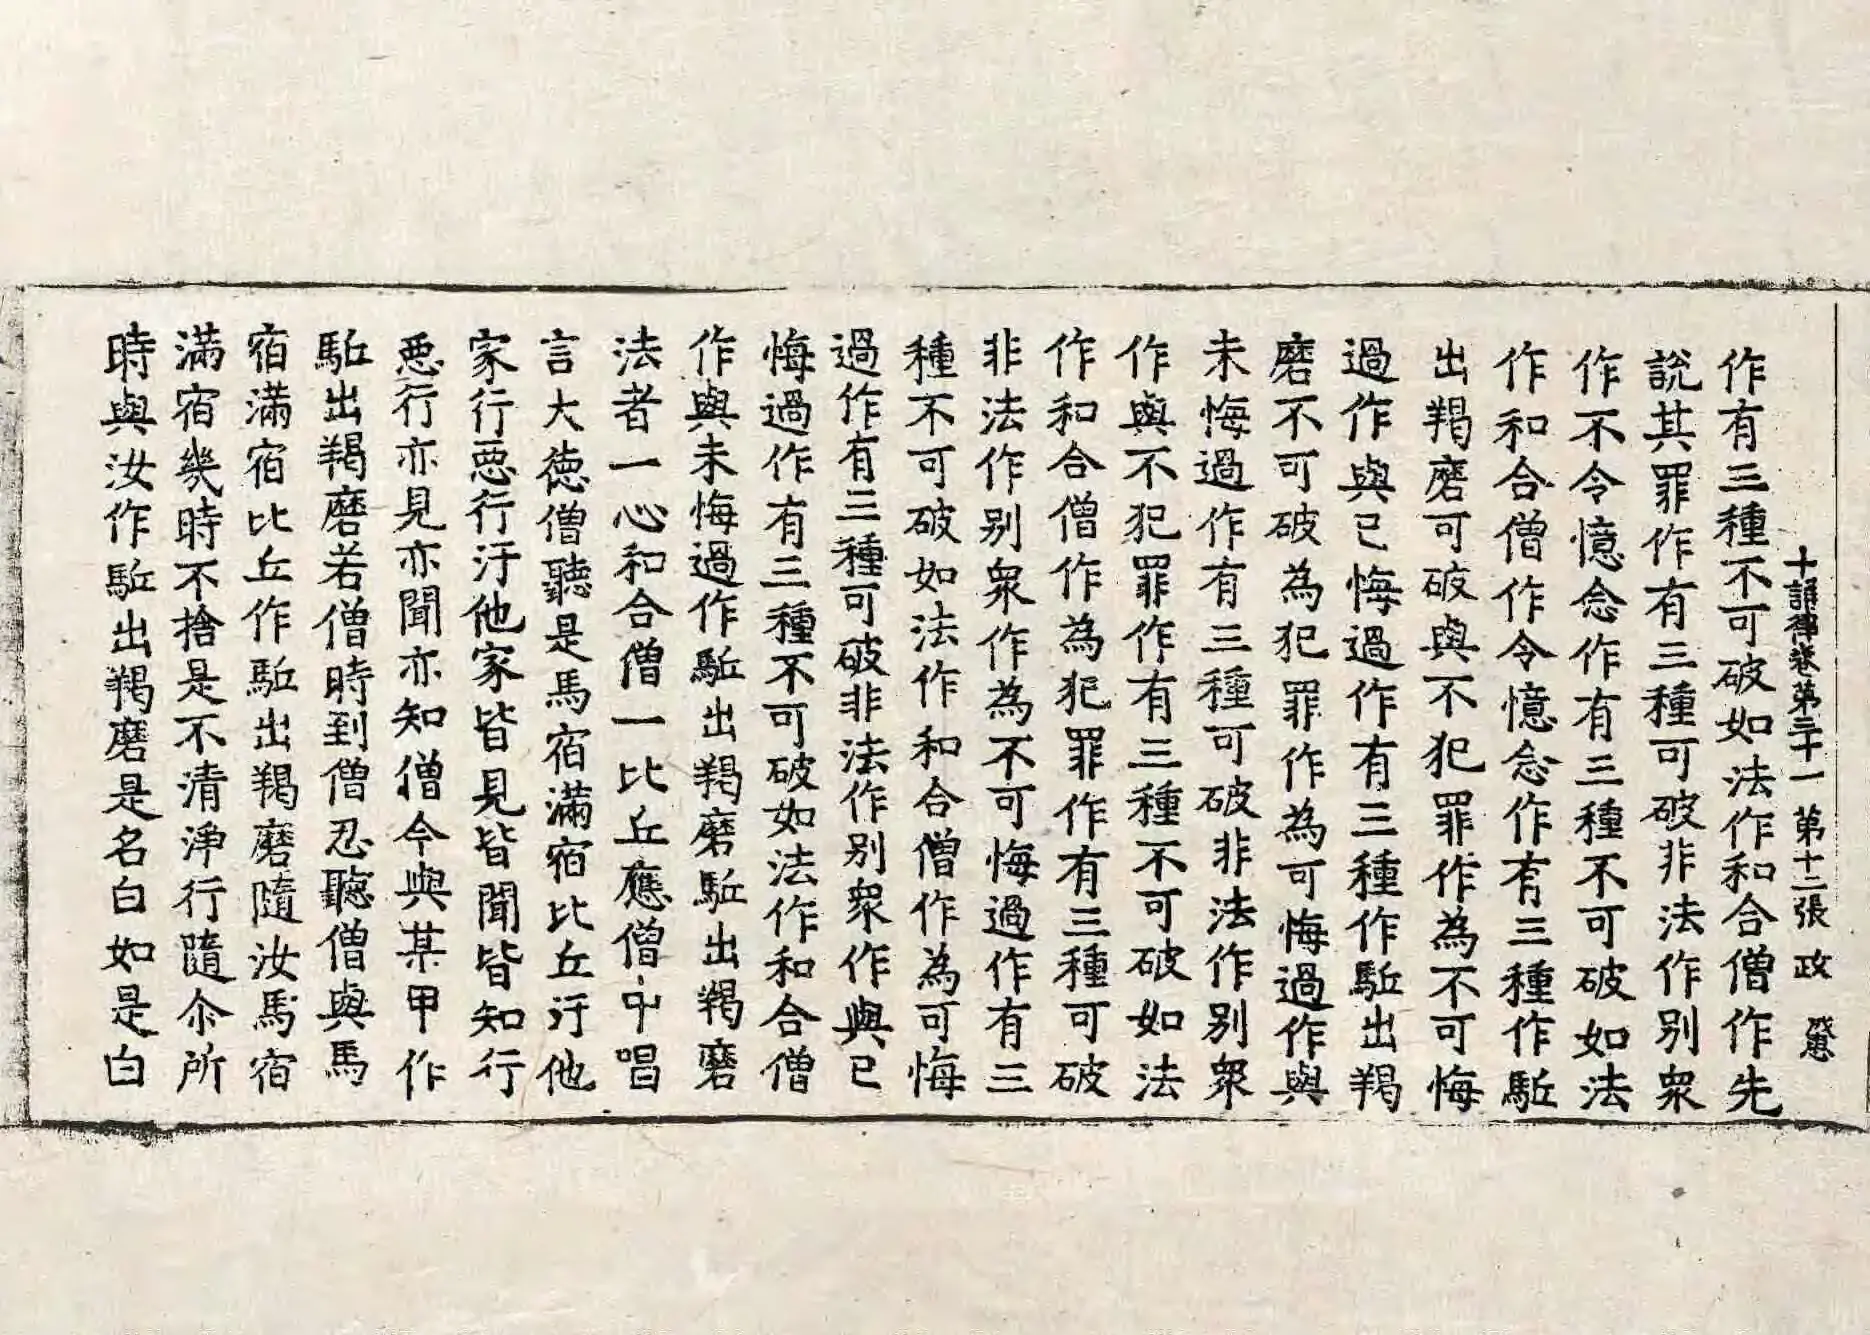 十誦律卷第三十一 第十二張 政
作有三種不可破如法作和合僧作先
說其罪作有三種可破非法作别衆
作不令憶念作有三種不可破如法
作和合僧作令憶念作有三種作駈
出羯磨可破與不犯罪作為不可悔
過作與已悔過作有三種作駈出羯
磨不可破為犯罪作為可悔過作與
未悔過作有三種可破非法作别衆
作與不犯罪作有三種不可破如法
作和合僧作為犯罪作有三種可破
非法作别衆作為不可悔過作有三
種不可破如法作和合僧作為可悔
過作有三種可破非法作别衆作與已
悔過作有三種不可破如法作和合僧
作與未悔過作駈出羯磨駈出羯磨
法者一心和合僧一比丘應僧中唱
言大徳僧聽是馬宿滿宿比丘汙他
家行惡行汙他家皆見皆聞皆知行
惡行亦見亦聞亦知僧今與某甲作
駈出羯磨若僧時到僧忍聽僧與馬
宿滿宿比丘作駈出羯磨隨汝馬宿
滿宿幾時不捨是不清淨行隨尒所
時與汝作駈出羯磨是名白如是白